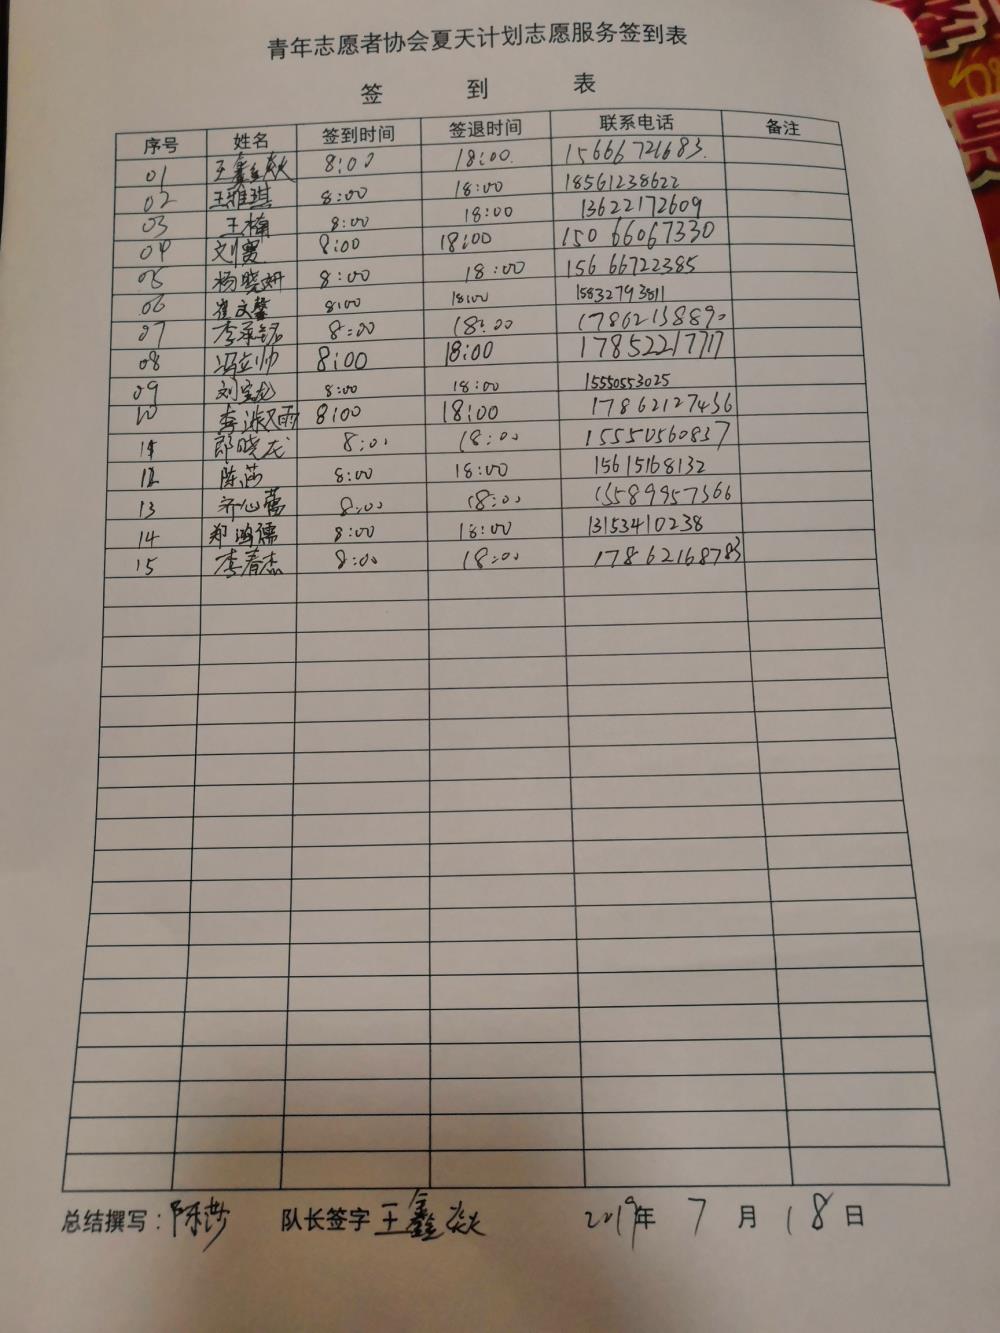 青年志愿者协会夏天计划志愿服务签到表
签 到 表
序号 姓名 签到时间 签退时间 联系电话 备注
01 王鑫焱 8:00 18:00. 15666721683.
02 王雅琪 8:00 18:00 18561238622
03 王楠 8:00 18:00 13622172609
04 刘赛 8:00 18:00 15066067330
05 杨晓妍 8:00 18:00 15666722385
06 崔文馨 8:00 18:00 15832793811
07 李承铭 8:00 18:00 17862138890
08 冯立帅 8:00 18:00 17852217717
09 刘宝龙 8:00 18:00 15550553025
10 李淑雨 8:00 18:00 17862127436
11 郎晓龙 8:00 18:00 15550560837
12 陈莎 8:00 18:00 15615168132
13 齐心蕾 8:00 18:00 15589957366
14 郑鸿儒 8:00 18:00 13153410238
15 李春杰 8:00 18:00 17862168783
总结撰写：陈莎 队长签字 王鑫焱 2019年 7 月 18 日